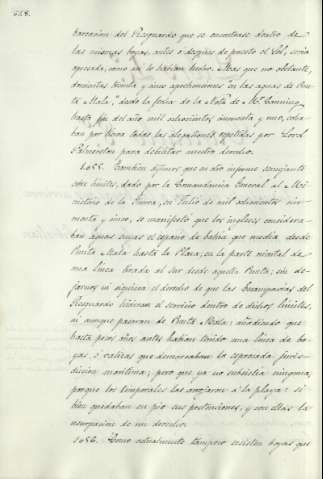 628.
barcacion del Resguardo que se encontrase dentro de
las mismas boyas, antes ó despues de puesto el Sol, seria
apresada, como asi lo habian hecho. Mas que no obstante,
doscientas treinta y cinco aprehensiones en las aguas de Pun-
ta Mala, desde la fecha de la Nota de Mr. Canning
hasta fin del año mil ochocientos cincuenta y uno, echa-
ban por tierra todas las alegaciones repetidas por Lord
Palmerston para debilitar nuestro derecho.
1685. Tambien dijimos que en otro informe semejante
sobre límites, dado por la Comandancia General al Mi-
nisterio de la Guerra, en Julio de mil ochocientos cin-
cuenta y cinco, se manifestó que los ingleses considera-
ban aguas suyas el espacio de bahia que media desde
Punta Mala hasta la Plaza, en la parte oriental de
una línea tirada al Sur desde aquella Punta; sin de-
jarnos ni siquiera el derecho de que las Escampavias del
Resguardo hicieran el servicio dentro de dichos límites,
ni aunque pasaran de Punta Mala: añadiendo que
hasta pocos años antes habian tenido una línea de bo-
yas ó valizas que demarcaban la espresada juris-
diccion marítima; pero que ya no subsistia ninguna,
porque los temporales las arrojaron á la playa: si
bien quedaban en pie sus pretensiones, y con ellas la
usurpacion de un derecho.
1686. Como actualmente tampoco existen boyas que